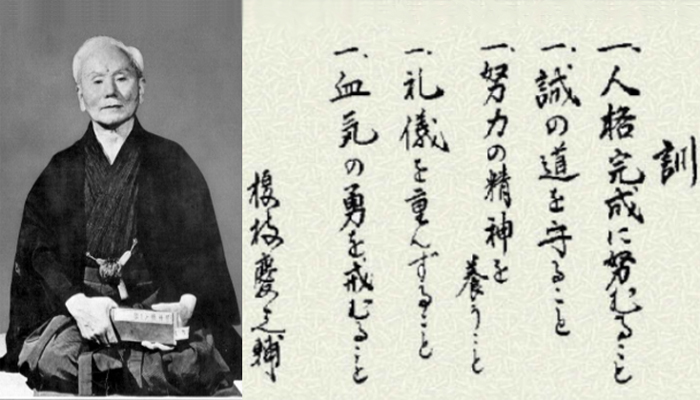 訓
一、人格完成に努むること
一、誠の道を守ること
一、努力の精神を養うこと
一、礼儀を重んずること
一、血気の勇を戒むること
榎枝慶之輔